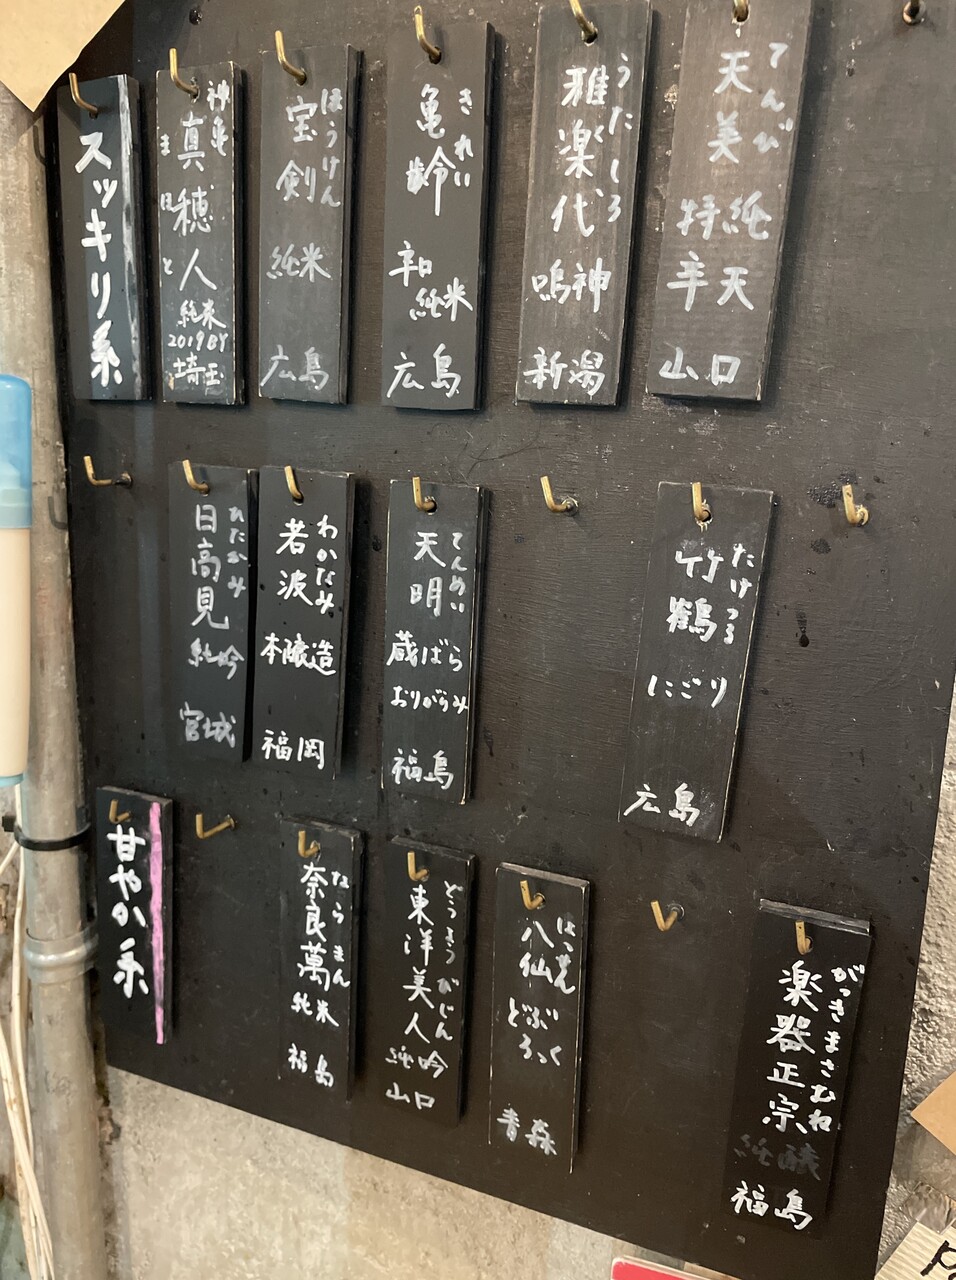 スッキリ系
神亀
真穂人
まほと
純米
2019BY
埼玉
宝剣
ほうけん
純米
広島
亀齢
きれい
辛口
純米
広島
雅楽代
うたしろ
鳴神
新潟
天美
てんび
特純
辛天
山口
日高見
ひたかみ
純吟
宮城
若波
わかなみ
本醸造
福岡
天明
てんめい
蔵ばら
おりがらみ
福島
竹鶴
たけつる
にごり
広島
甘やか系
奈良萬
ならまん
純米
福島
東洋美人
とうようびじん
純吟
山口
八仙
はっせん
どぶ
ろっく
青森
楽器正宗
がっきまさむね
純醸
福島